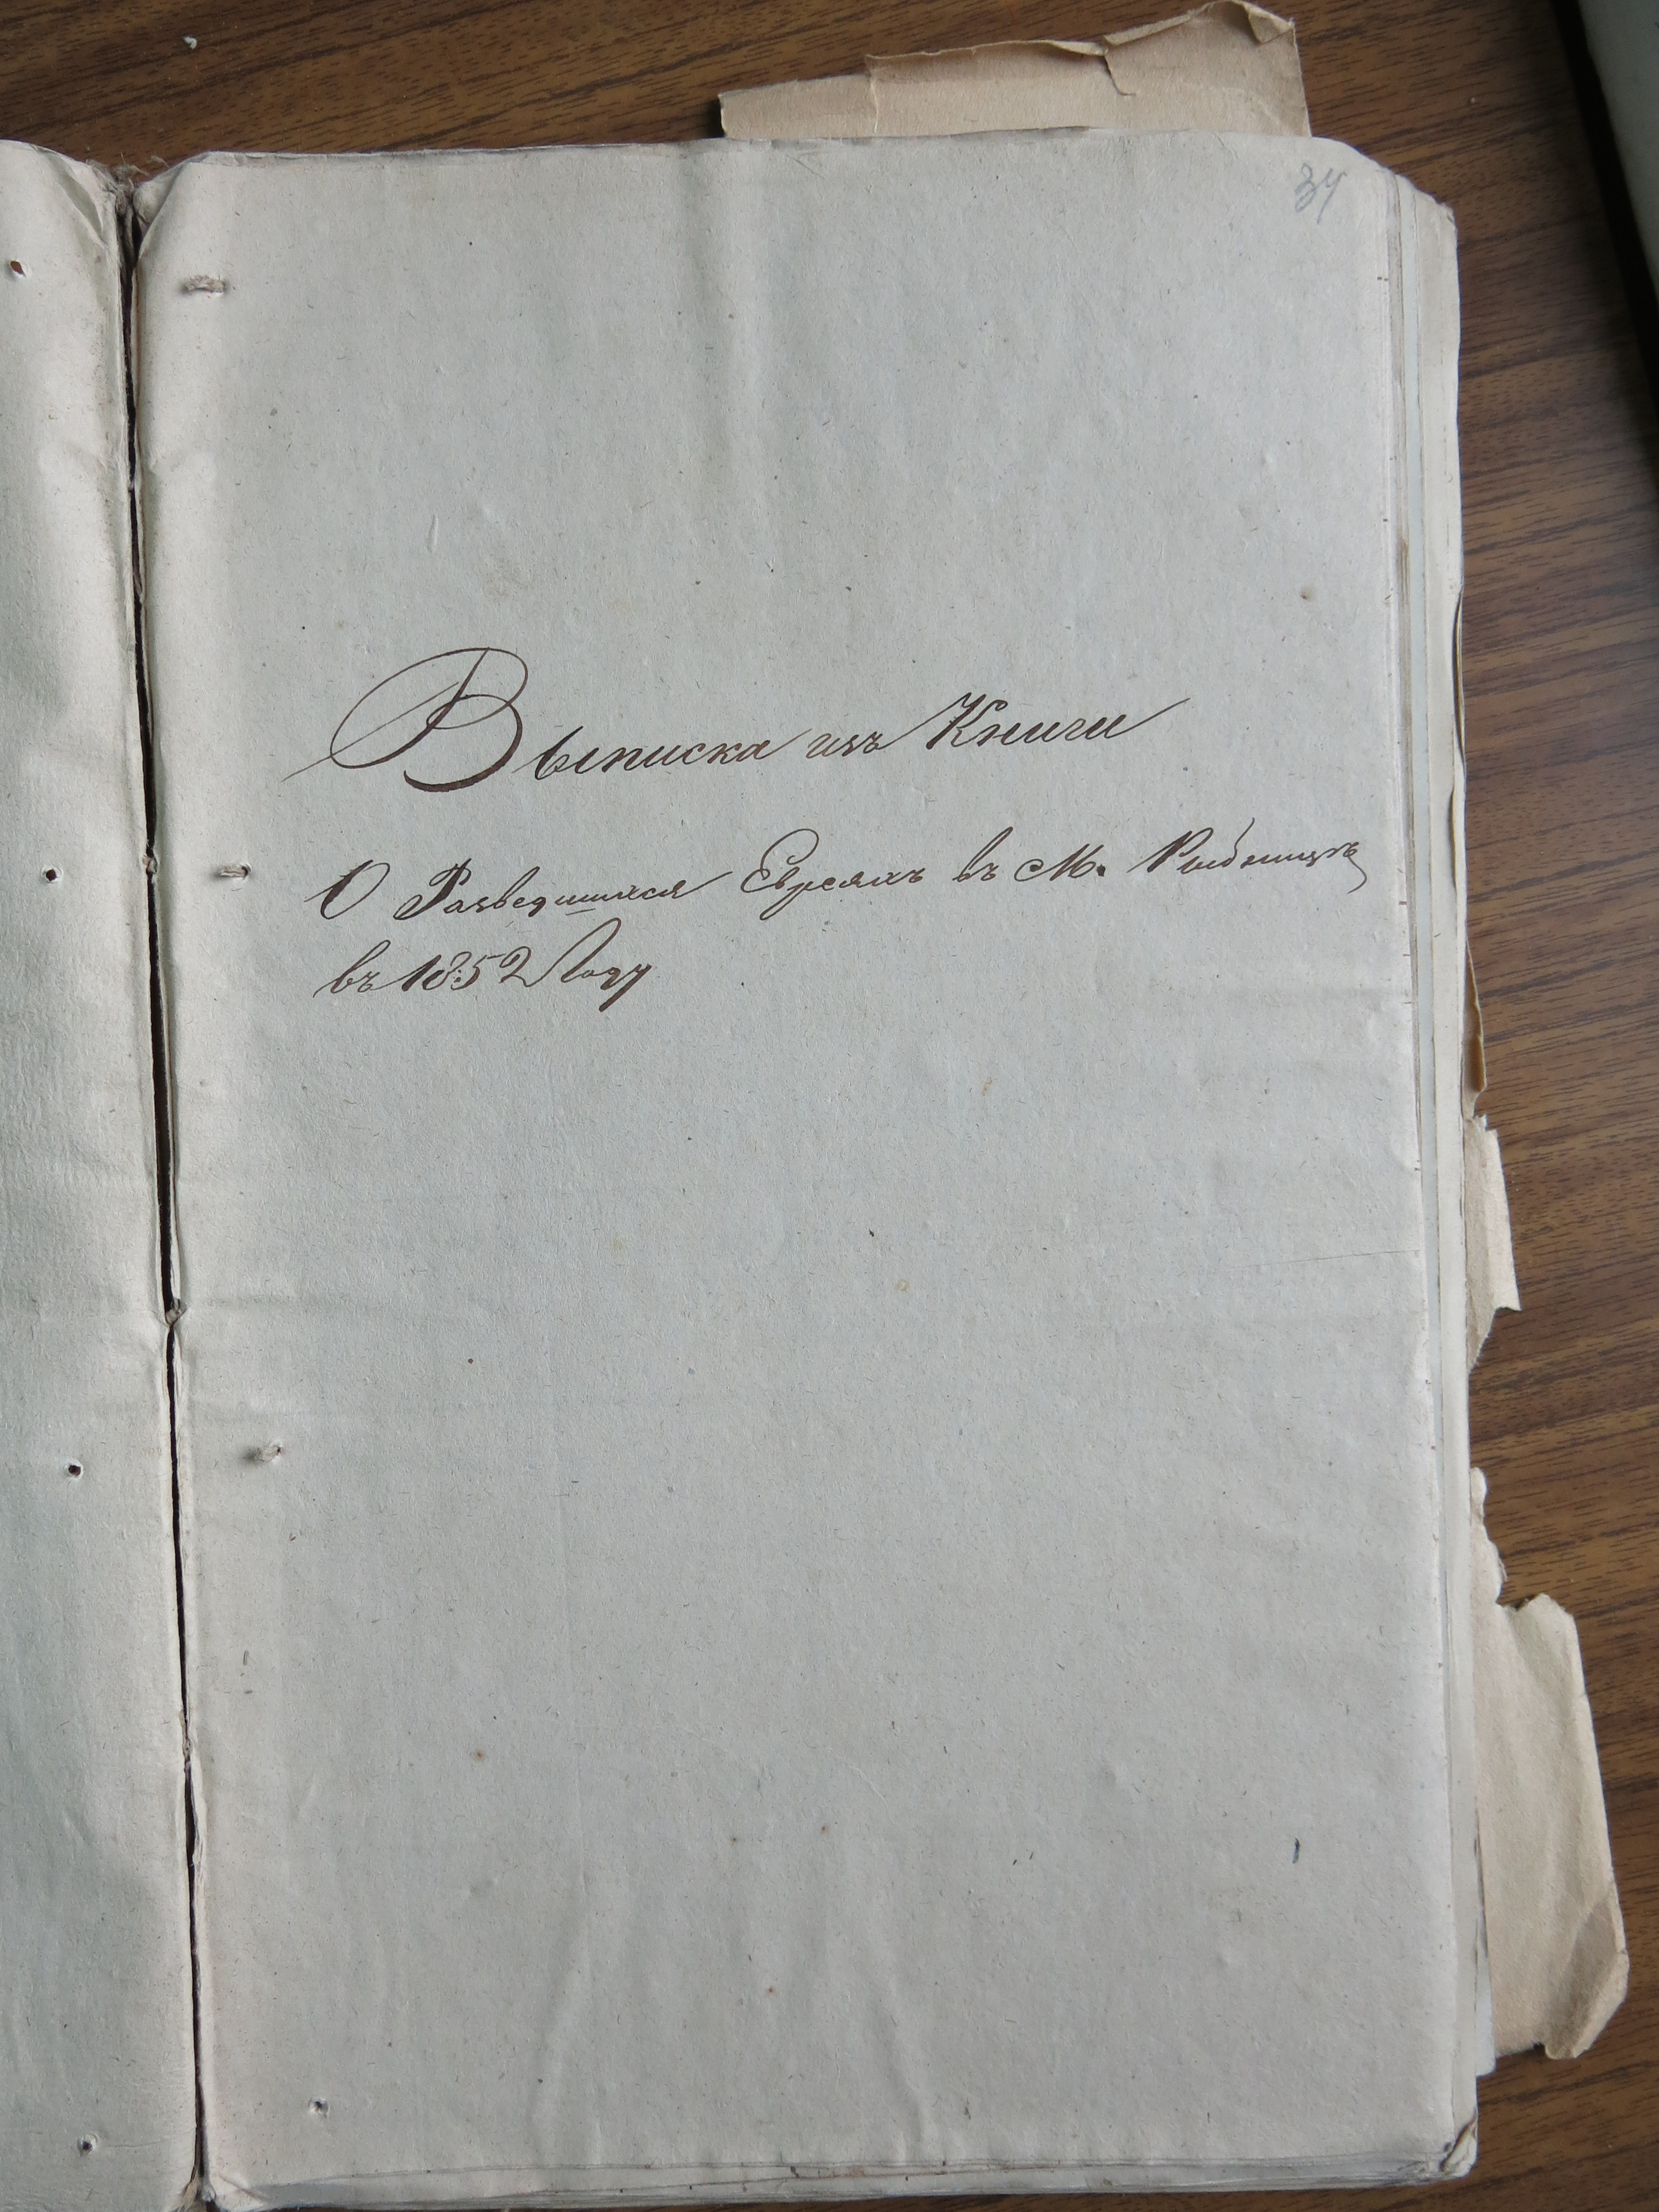 34
Выписка изъ Книги
О Разведшихся Евреяхъ въ М. Рыбницѣ
въ 1852 Году